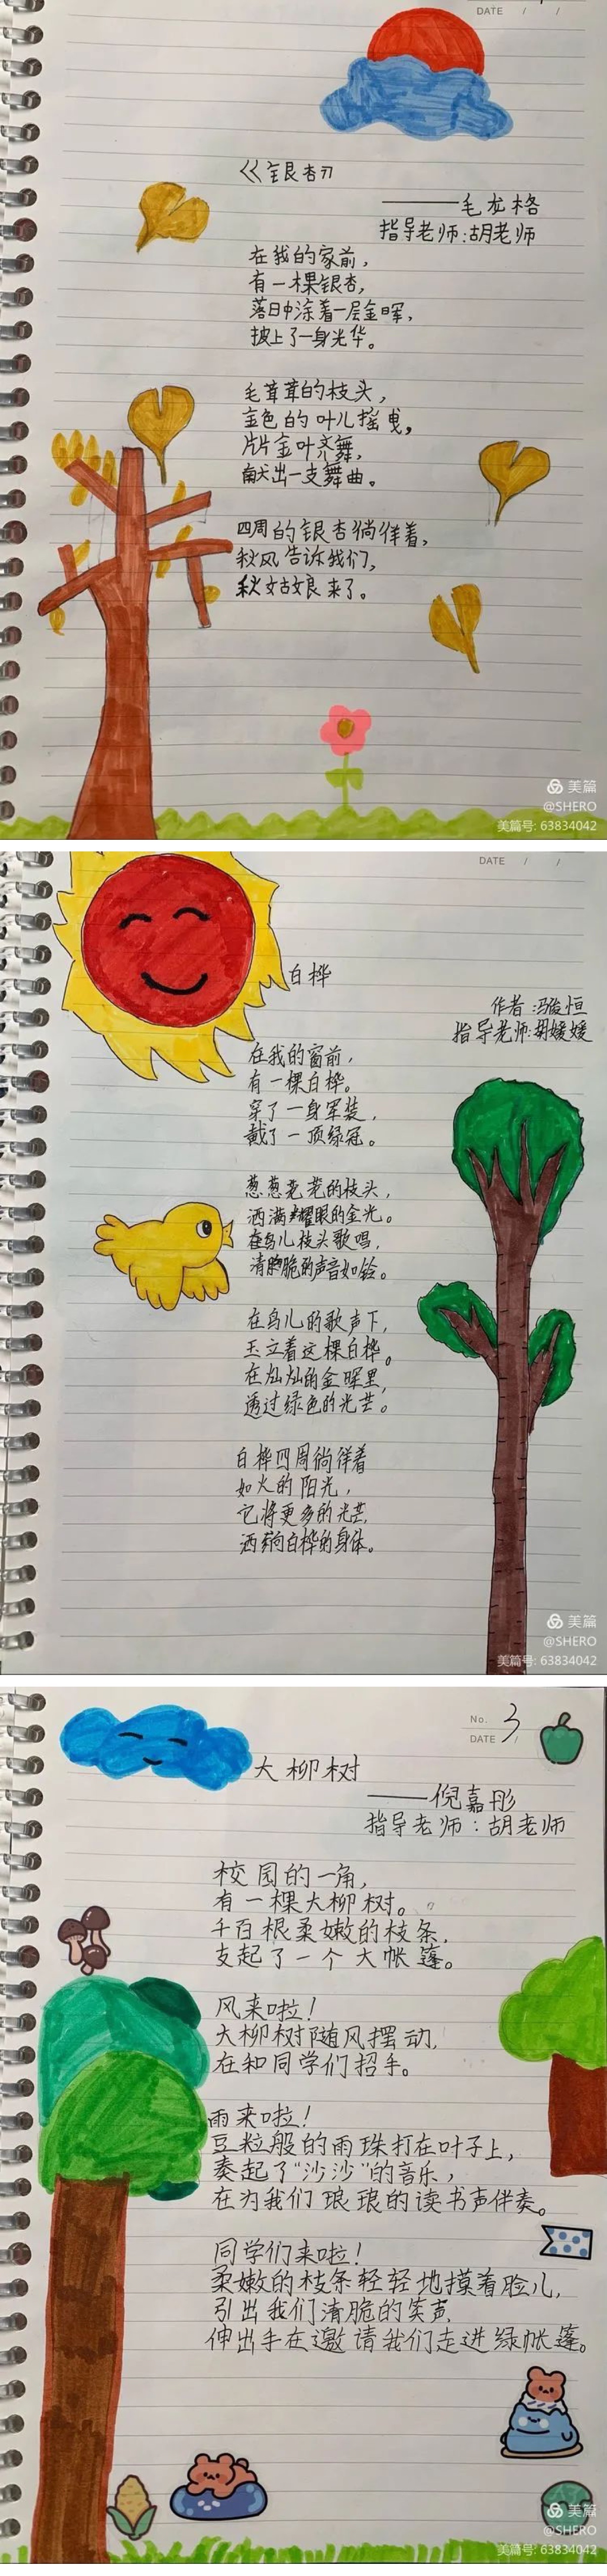 DATE / /
《银杏》
——毛龙格
指导老师:胡老师
在我的家前,
有一棵银杏,
落日中涂着一层金晖,
披上了一身光华。
毛茸茸的枝头,
金色的叶儿摇曳,
片片金叶齐舞,
献出一支舞曲。
四周的银杏徜徉着,
秋风告诉我们,
秋姑娘来了。
美篇
@SHERO
美篇号: 63834042
DATE / /
白桦
作者:冯俊恒
指导老师:胡媛媛
在我的窗前,
有一棵白桦。
穿了一身军装,
戴了一顶绿冠。
葱葱茏茏的枝头,
洒满耀眼的金光。
在鸟儿枝头歌唱,
清脆的声音如铃。
在鸟儿的歌声下,
玉立着这棵白桦。
在灿灿的金晖里,
透过绿色的光芒。
白桦四周徜徉着
如火的阳光,
它将更多的光芒,
洒向白桦的身体。
美篇
@SHERO
美篇号: 63834042
No. 3
DATE /
大柳树
——倪嘉彤
指导老师:胡老师
校园的一角,
有一棵大柳树。
千百根柔嫩的枝条,
支起了一个大帐篷。
风来啦!
大柳树随风摆动,
在和同学们招手。
雨来啦!
豆粒般的雨珠打在叶子上,
奏起了“沙沙”的音乐,
在为我们琅琅的读书声伴奏。
同学们来啦!
柔嫩的枝条轻轻地摸着脸儿,
引出我们清脆的笑声,
伸出手在邀请我们走进绿帐篷。
美篇
@SHERO
美篇号: 63834042